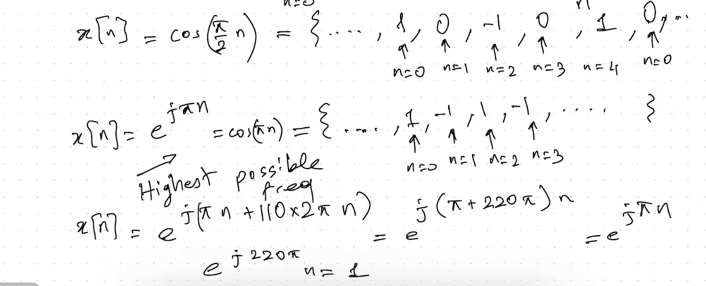 n=0
x[n] = cos(π/2 n) = { ...., 1, 0, -1, 0, 1, 0, ...
n=0 n=1 n=2 n=3 n=4 n=0
x[n] = e^{jπn} = cos(πn) = { ...., 1, -1, 1, -1, .... }
n=0 n=1 n=2 n=3
Highest possible
freq
x[n] = e^{j(πn + 110×2πn)} = e^{j(π+220π)n} = e^{jπn}
e^{j220πn} = 1